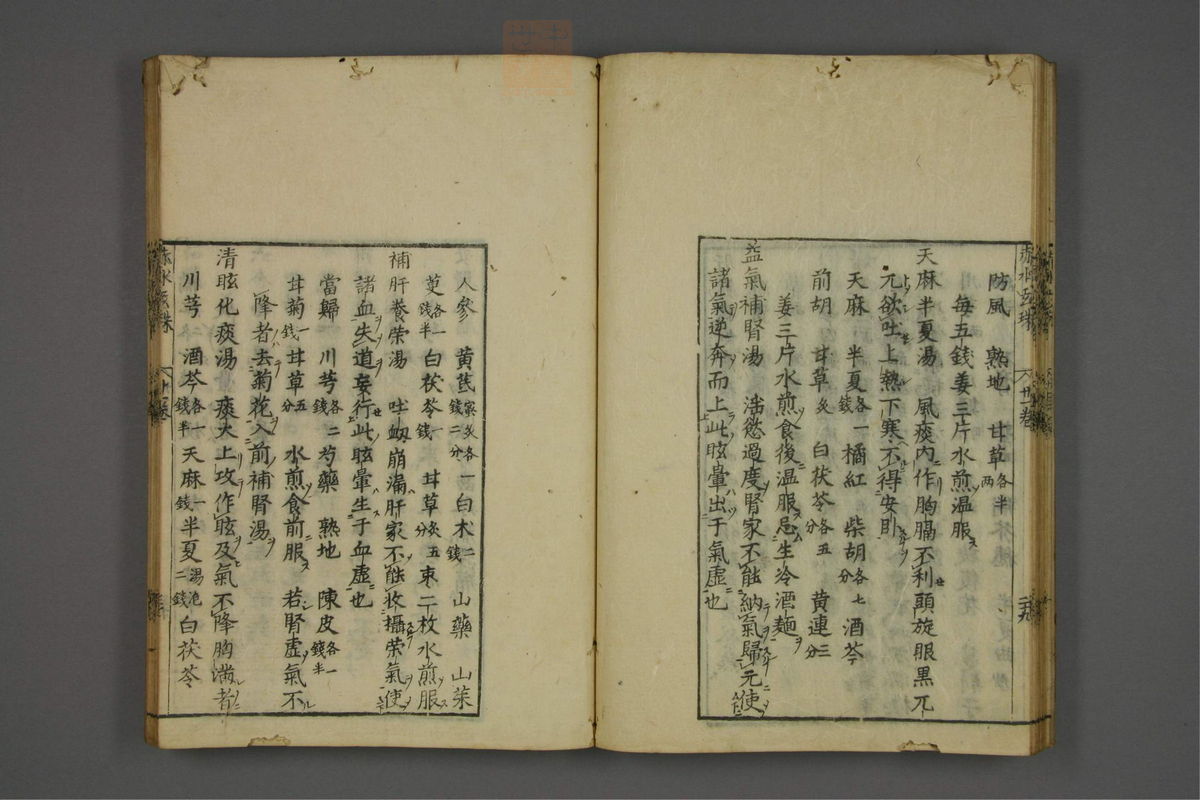 赤水玄珠 廿卷 二十九
防風 熟地 甘草各半两
每五錢姜三片水煎温服
天麻半夏湯 風痰内作胸膈不利頭旋眼黑兀
兀欲吐上熱下寒不得安卧
天麻 半夏各一錢 橘紅 柴胡各七分 酒芩
前胡 甘草炙 白茯苓各五 黄連三分
姜三片水煎食後温服忌生冷酒麵
益氣補腎湯 淫慾過度腎家不能納氣歸元使
諸氣逆奔而上此眩暈出于氣虚也
人參 黄芪炙各一錢二分 白术二錢 山藥 山茱
萸各一錢半 白茯苓一錢 甘草炙五分 枣二枚水煎服
補肝養荣湯 吐衂崩漏肝家不能收攝荣氣使
諸血失道妄行此眩暈生于血虚也
當歸 川芎各二錢 芍藥 熟地 陳皮各一錢半
甘菊一錢 甘草五分 水煎食前服 若腎虚氣不
降者去菊花入前補腎湯
清眩化痰湯 痰火上攻作眩及氣不降胸满者
川芎 酒芩各一錢半 天麻一錢 半夏湯泡二錢 白茯苓
赤水玄珠